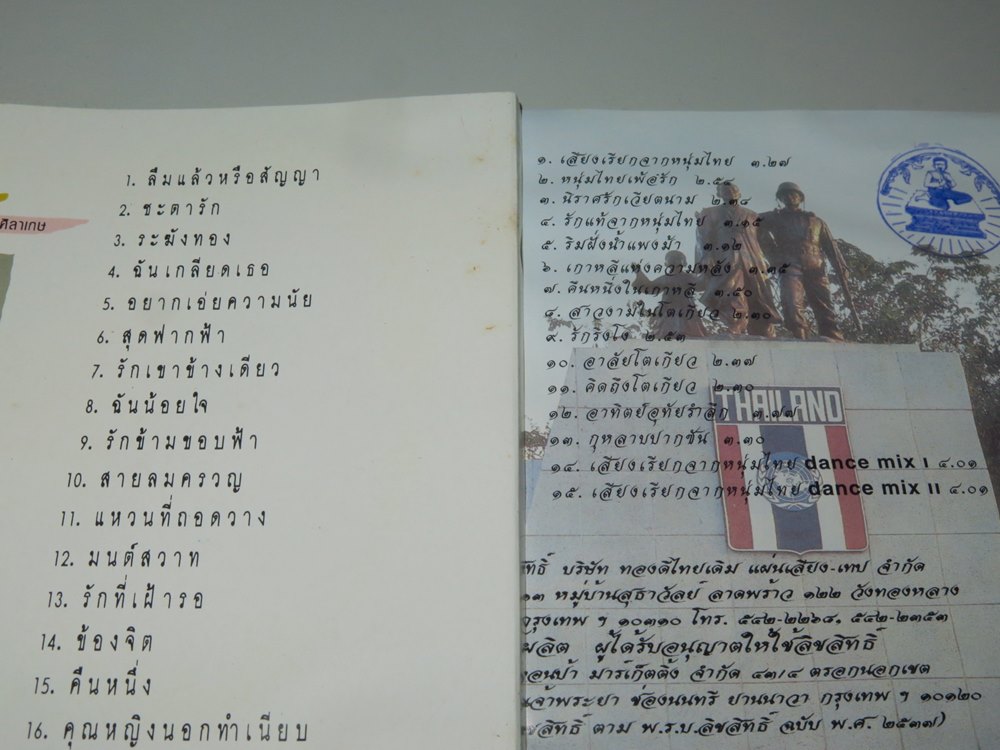 ศิลาเกษ
1. ลืมแล้วหรือสัญญา
2. ชะตารัก
3. ระฆังทอง
4. ฉันเกลียดเธอ
5. อยากเอ่ยความนัย
6. สุดฟากฟ้า
7. รักเขาข้างเดียว
8. ฉันน้อยใจ
9. รักข้ามขอบฟ้า
10. สายลมครวญ
11. แหวนที่ถอดวาง
12. มนต์สวาท
13. รักที่เฝ้ารอ
14. ข้องจิต
15. คืนหนึ่ง
16. คุณหญิงนอกทำเนียบ
๑. เสียงเรียกจากหนุ่มไทย ๓.๒๗
๒. หนุ่มไทยเพ้อรัก ๒.๕๔
๓. นิราศรักเวียตนาม ๒.๓๔
๔. รักแท้จากหนุ่มไทย ๓.๑๕
๕. ริมฝั่งน้ำแพงม้า ๓.๑๒
๖. เกาหลีแห่งความหลัง ๓.๓๕
๗. คืนหนึ่งในเกาหลี ๓.๕๐
๘. สาวงามในโตเกียว ๒.๓๐
๙. รักริงโง ๒.๕๓
๑๐. อาลัยโตเกียว ๒.๓๗
๑๑. คิดถึงโตเกียว ๒.๓๐
๑๒. อาทิตย์อุทัยรำลึก ๓.๗๗
๑๓. กุหลาบปากซัน ๓.๓๐
๑๔. เสียงเรียกจากหนุ่มไทย dance mix I ๔.๐๑
๑๕. เสียงเรียกจากหนุ่มไทย dance mix II ๔.๐๑
THAILAND
ทธิ์ บริษัท ทองดีไทยเดิม แผ่นเสียง-เทป จำกัด
๑๓ หมู่บ้านสุธาวัลย์ ลาดพร้าว ๑๒๒ วังทองหลาง
กรุงเทพ ฯ ๑๐๓๑๐ โทร. ๕๔๒-๒๒๖๘, ๕๔๒-๒๓๕๓
ผลิต ผู้ได้รับอนุญาตให้ใช้ลิขสิทธิ์
จอนป้า มาร์เก็ตติ้ง จำกัด ๔๓/๔ ตรอกนอกเขต
เจ้าพระยา ช่องนนทรี ยานนาวา กรุงเทพ ฯ ๑๐๑๒๐
ขสิทธิ์ ตาม พ.ร.บ.ลิขสิทธิ์ ฉบับ พ.ศ. ๒๕๓๗)